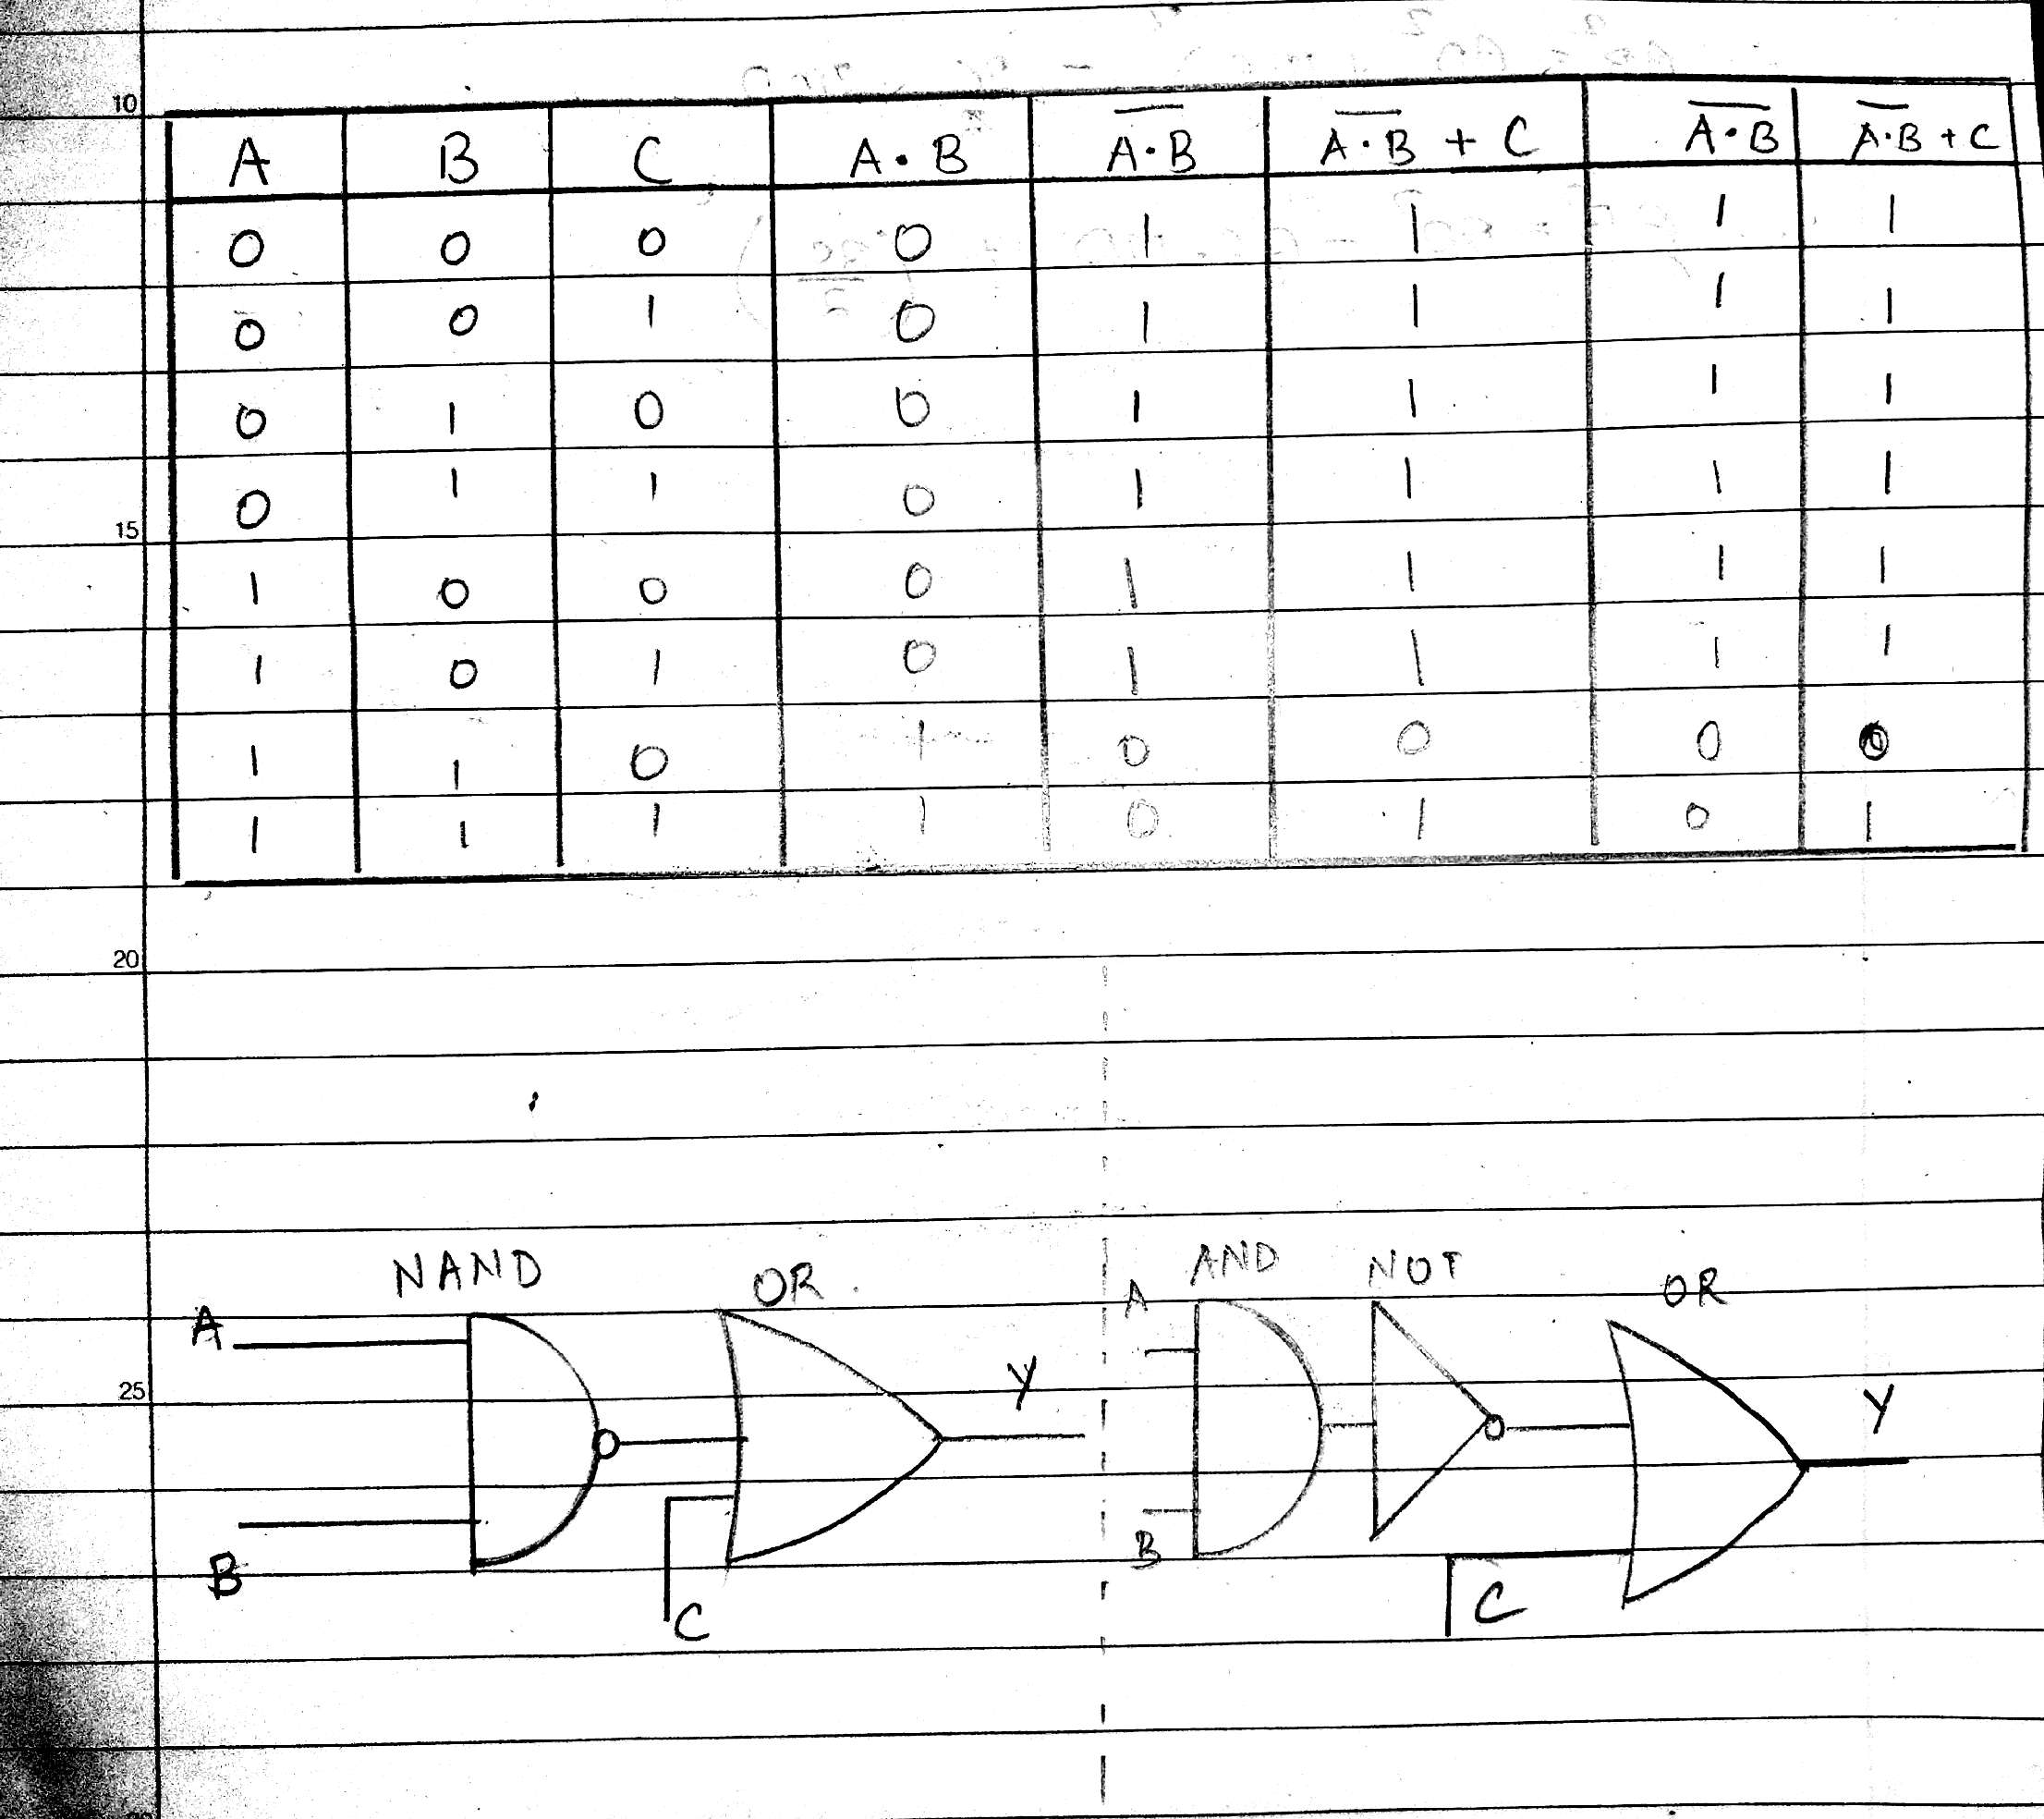 10
A B C A·B A̅·̅B̅ A̅·̅B̅ + C A̅·̅B̅ A̅·̅B̅ + C
0 0 0 0 1 1 1 1
0 0 1 0 1 1 1 1
0 1 0 0 1 1 1 1
0 1 1 0 1 1 1 1
15
1 0 0 0 1 1 1 1
1 0 1 0 1 1 1 1
1 1 0 1 0 0 0 0
1 1 1 1 0 1 0 1
20
NAND OR.
A
Y
25
B
C
AND NOT OR
A
Y
B
C